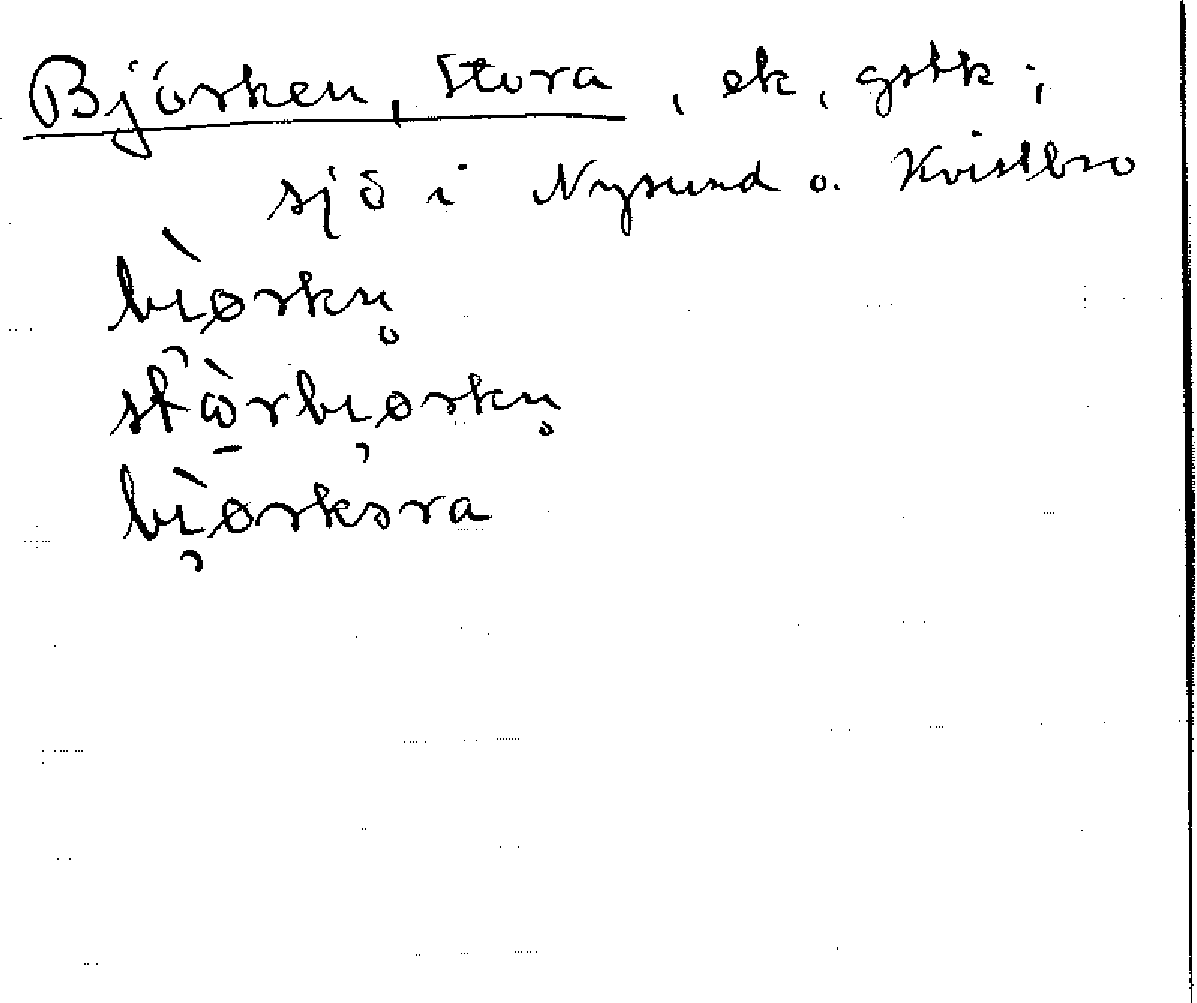 Björken, Stora, ek, gstk;
sjö i Nysund o. Kvistbro
bı̯ø̀rkn̥
stὼ̱rbı̯ørkn̥
bı̯ø̀rksra